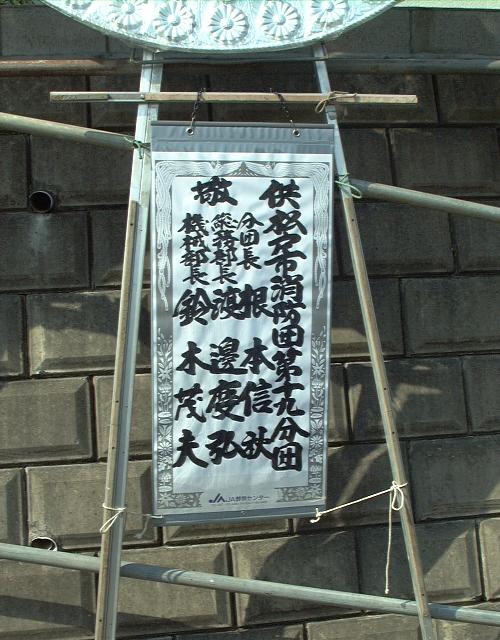 供
松尾市消防団第十九分団
分団長 根本信秋
総務部長 渡邊慶弘
機械部長 鈴木茂夫
敬
JA JA葬祭センター